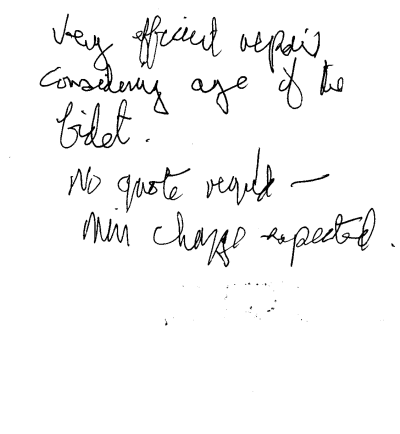 Very efficient repair
considering age of the
bidet.
No quote requd —
Min charge expected.